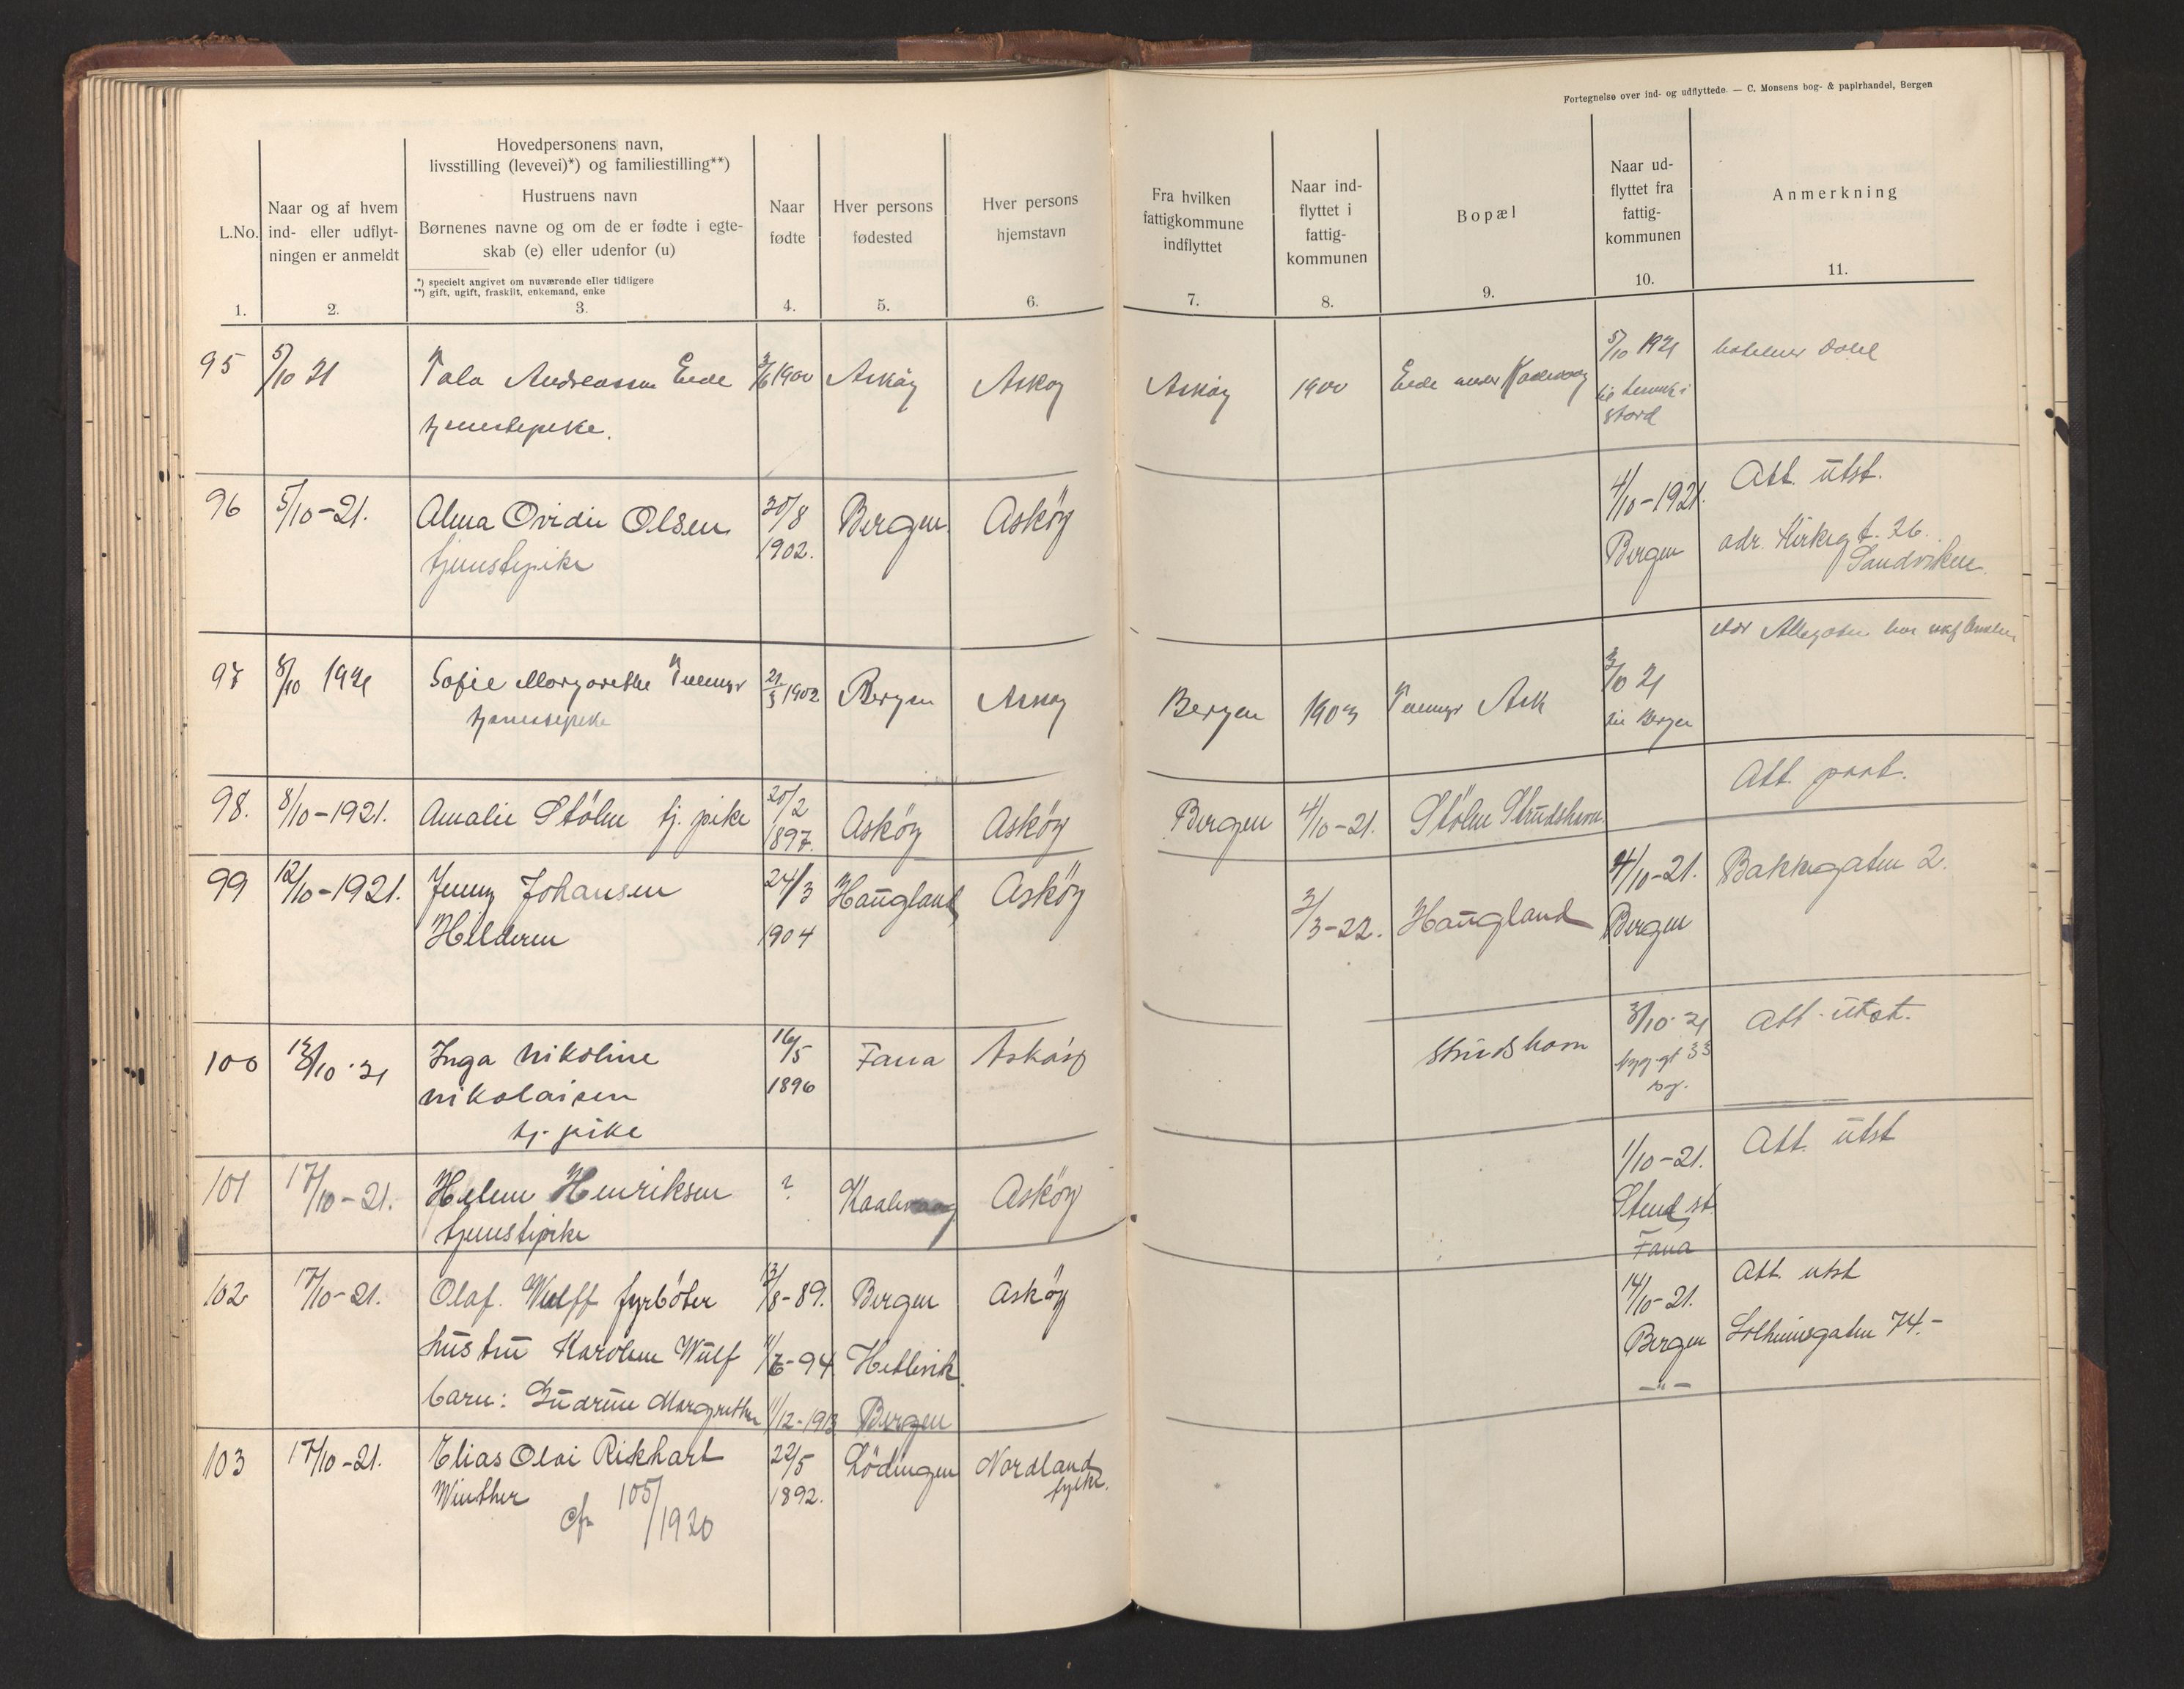 Fortegnelse over ind- og udflyttede. — C. Monsens bog- & papirhandel, Bergen
L.No.
Naar og af hvem ind- eller udflyt- ningen er anmeldt
Hovedpersonens navn,
livsstilling (levevei)*) og familiestilling**)
Hustruens navn
Børnenes navne og om de er fødte i egte-
skab (e) eller udenfor (u)
*) specielt angivet om nuværende eller tidligere
**) gift, ugift, fraskilt, enkemand, enke
Naar fødte
Hver persons fødested
Hver persons hjemstavn
Fra hvilken fattigkommune indflyttet
Naar ind- flyttet i fattig- kommunen
Bopæl
Naar ud- flyttet fra fattig- kommunen
Anmerkning
1. 2. 3. 4. 5. 6. 7. 8. 9. 10. 11.
95 5/10 21 Andreassen 1900 Askøy Askøy Askøy 1900 5/10 1921
tjenestepike. Stord
96 5/10-21. Alma Ovidie Olsen 20/8 Bergen Askøy 4/10-1921. Att. utst.
tjenstepike 1902. Bergen adr. Kirkegt. 26.
Sandviken
97 8/10 1921 Sofie Margrethe 21/3 1902 Bergen Askøy Bergen 1903 Ask 3/10 21
tjenestepike til Bergen
98. 8/10-1921. Amalie Stölen tj. pike 20/2 Asköy Asköy Bergen 4/10-21. Stölen Strudshavn Att.
1897.
99 12/10-1921. Jenny Johansen 24/3 Haugland Asköy 4/10-21. Bakkegaten 2.
Hilderen 1904 3/3-22. Haugland Bergen
100 13/10-21 Inga Nikoline 16/5 Fana Asköy Strudshavn 3/10-21 Att. utst.
Nikolaisen 1896 33
tj. pike
101 17/10-21. Helene Henriksen ? Asköy 1/10-21. Att. utst
tjenstepike Stend st
Fana
102 17/10-21. Olaf. Wulff fyrböter 13/8-89. Bergen Asköy 14/10-21. Att. utst
hustru Karolene Wulf 11/6-94 Hetlevik. Bergen Solheimsgaten 74.-
barn: Gudrun Margrethe 11/12-1913 Bergen —"—
103 17/10-21. Elias Olai Rikhart 22/5 Lödingen Nordland
Winther 1892. fylke.
cfr 105/1920